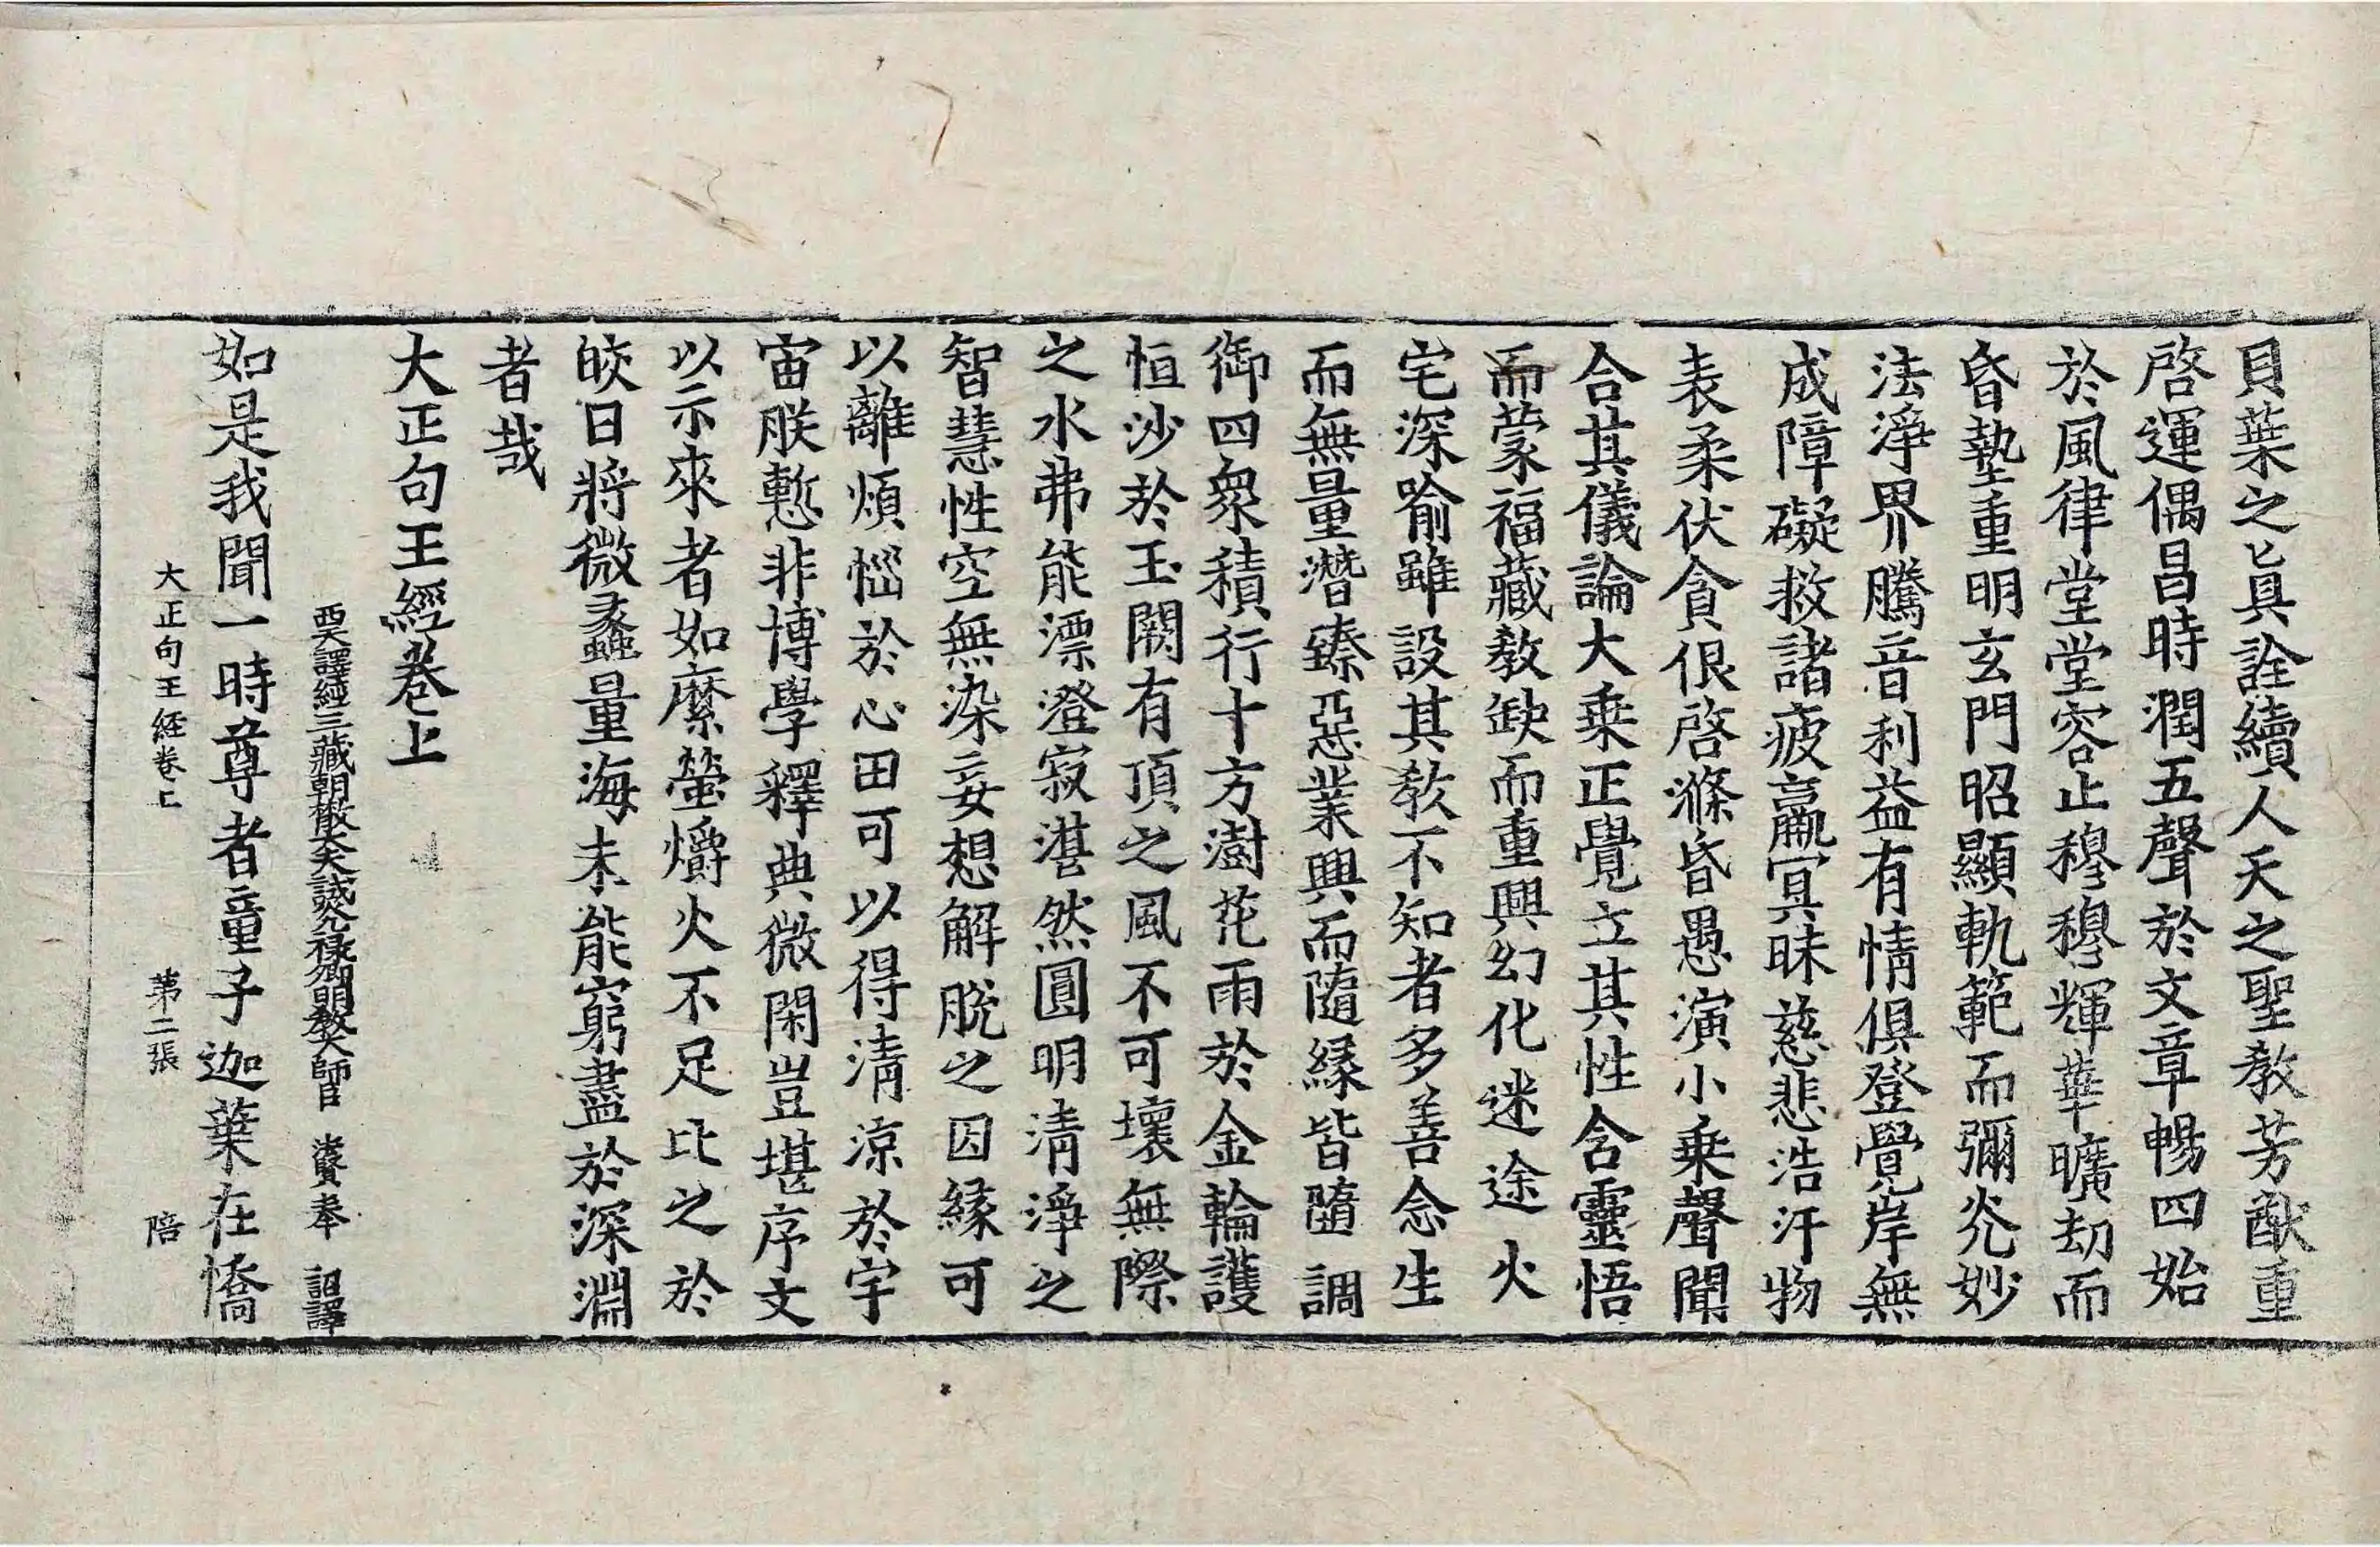 貝葉之眞詮續人天之聖教芳猷重
啓運偶昌時潤五聲於文章暢四始
於風律堂堂容止穆穆輝華曠劫而
昏墊重明玄門昭顯軌範而彌光妙
法淨界騰音利益有情俱登覺岸無
成障礙救諸疲羸冥昧慈悲浩汗物
表柔伏貪佷啓滌昏愚演小乗聲聞
合其儀論大乗正覺立其性含靈悟
而蒙福藏教缺而重興幻化迷途火
宅深喻雖設其教不知者多善念生
而無量潛臻惡業興而隨緣皆墮調
御四衆積行十方澍花雨於金輪護
恒沙於玉闕有頂之風不可壞無際
之水弗能漂澄寂湛然圓明清淨之
智慧性空無染妄想解脫之因緣可
以離煩惱於心田可以得清涼於宇
宙朕慙非博學釋典微閑豈堪序文
以示來者如縻螢爝火不足比之於
皎日將微蠡量海未能窮盡於深淵
者哉
大正句王經卷上
西天譯經三藏朝散大夫試光禄卿明教大師臣 法賢奉 詔譯
如是我聞一時尊者童子迦葉在憍
大正句王經卷上 第二張 陪